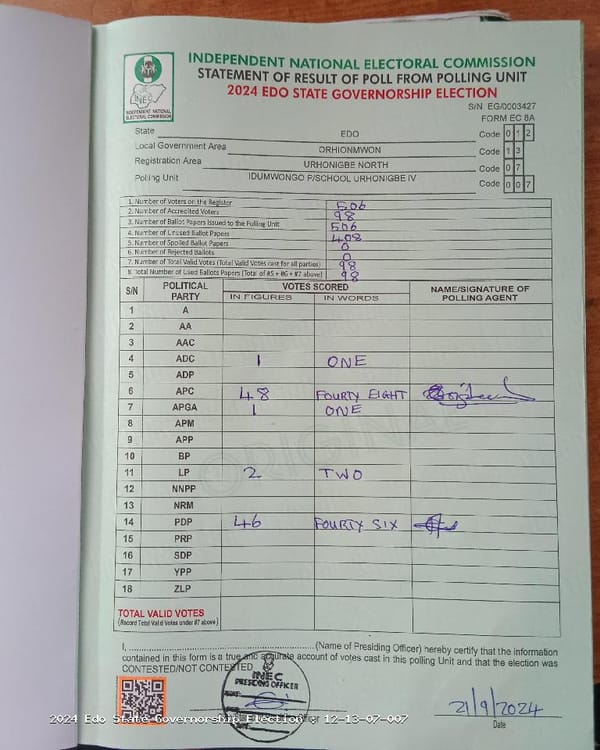 INDEPENDENT NATIONAL ELECTORAL COMMISSION
STATEMENT OF RESULT OF POLL FROM POLLING UNIT
2024 EDO STATE GOVERNORSHIP ELECTION
INEC
INDEPENDENT NATIONAL ELECTORAL COMMISSION
S/N EG/0003427
FORM EC 8A
State EDO Code 0 1 2
Local Government Area ORHIONMWON Code 1 3
Registration Area URHONIGBE NORTH Code 0 7
Polling Unit IDUMWONGO P/SCHOOL URHONIGBE IV Code 0 0 7
1. Number of Voters on the Register 506
2. Number of Accredited Voters 98
3. Number of Ballot Papers Issued to the Polling Unit 506
4. Number of Unused Ballot Papers 408
5. Number of Spoiled Ballot Papers 0
6. Number of Rejected Ballots 0
7. Number of Total Valid Votes (Total Valid Votes cast for all parties) 98
8. Total Number of Used Ballots Papers (Total of #5 + #6 + #7 above) 98
S/N POLITICAL PARTY VOTES SCORED NAME/SIGNATURE OF POLLING AGENT
IN FIGURES IN WORDS
1 A
2 AA
3 AAC
4 ADC 1 ONE
5 ADP
6 APC 48 FOURTY EIGHT
7 APGA 1 ONE
8 APM
9 APP
10 BP
11 LP 2 TWO
12 NNPP
13 NRM
14 PDP 46 FOURTY SIX
15 PRP
16 SDP
17 YPP
18 ZLP
ORIGINAL
TOTAL VALID VOTES
(Record Total Valid Votes under #7 above)
I, (Name of Presiding Officer) hereby certify that the information
contained in this form is a true and accurate account of votes cast in this polling Unit and that the election was
CONTESTED/NOT CONTESTED
INEC
PRESIDING OFFICER
21/9/2024
Date
2024 Edo State Governorship Election - 12-13-07-007